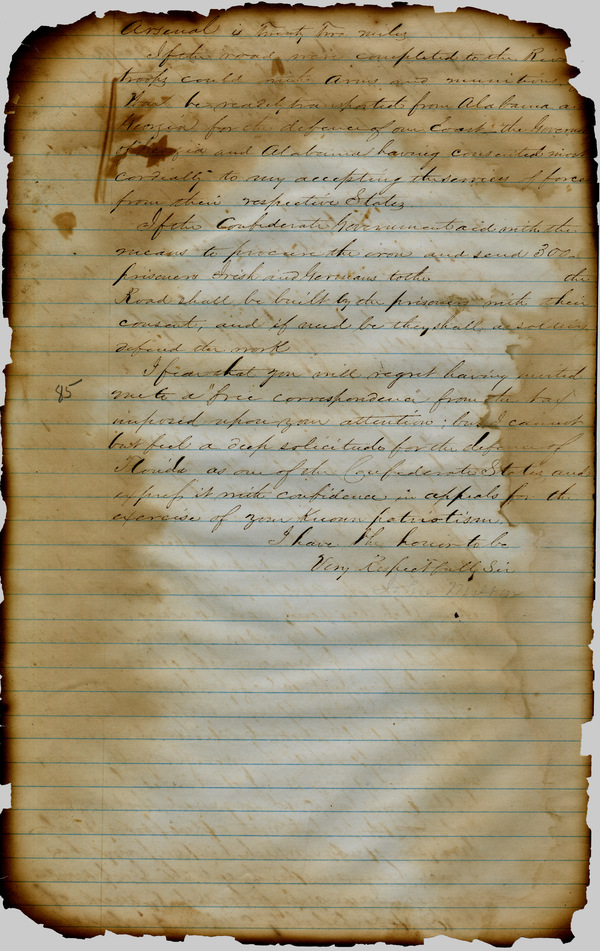 Arsenal is Twenty Two miles
If the road were completed to the River
troops could with Arms and munitions
War be readily transported from Alabama a
Georgia for the defence of our Coast, the Govern
of and Alabama having consented most
cordially to my accepting the services of force
from their respective States.
If the Confederate Government aid with the
means to procure the iron and send 300
prisoners Irish and Germans to the the
Road shall be built by the prisoners with their
consent, and if need be they shall, as
defend the work
I fear that you will regret having invited
85
me to a "free correspondence" from the tax
imposed upon your attention; but I cannot
but feel a deep solicitude for the defence of
Florida as one of the Confederate States and
express it with confidence in appeals for the
exercise of your Known patriotism
I have the honor to be
Very Respectfully Sir